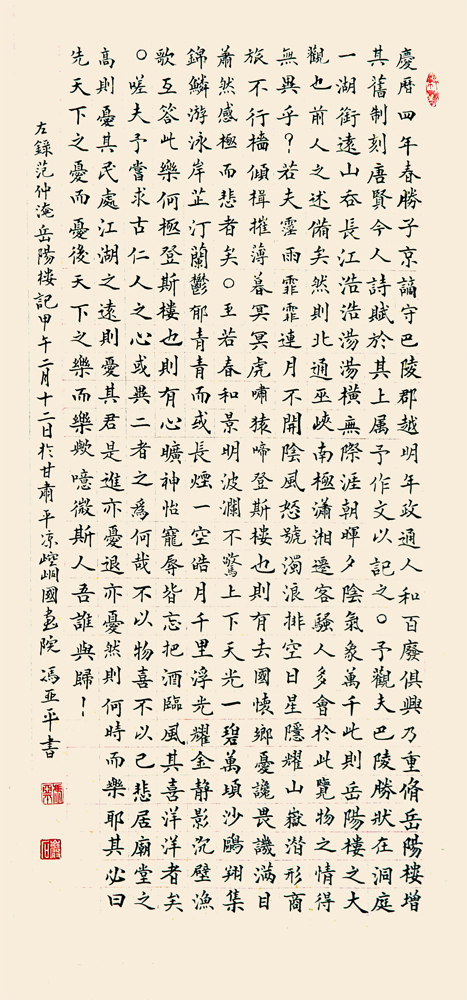 慶曆四年春勝子京謫守巴陵郡越明年政通人和百廢俱興乃重脩岳陽樓增
其舊制刻唐賢今人詩賦於其上属予作文以記之。予觀夫巴陵勝狀在洞庭
一湖銜遠山吞長江浩浩湯湯橫無際涯朝暉夕陰氣象萬千此則岳陽樓之大
觀也前人之述備矣然則北通巫峽南極瀟湘遷客騷人多會於此覽物之情得
無異乎？若夫霪雨霏霏連月不開陰風怒號濁浪排空日星隱耀山嶽潛形商
旅不行檣傾楫摧薄暮冥冥虎嘯猿啼登斯樓也則有去國懷鄉憂讒畏譏滿目
蕭然感極而悲者矣。至若春和景明波瀾不驚上下天光一碧萬頃沙鷗翔集
錦鱗游泳岸芷汀蘭鬱郁青青而或長煙一空皓月千里浮光耀金静影沉璧漁
歌互答此樂何極登斯樓也則有心曠神怡寵辱皆忘把酒臨風其喜洋洋者矣
。嗟夫予嘗求古仁人之心或異二者之爲何哉不以物喜不以己悲居廟堂之
高則憂其民處江湖之遠則憂其君是進亦憂退亦憂然則何時而樂耶其必曰
先天下之憂而憂後天下之樂而樂歟噫微斯人吾誰與歸！
右錄范仲淹岳陽樓記甲午二月十二日於甘肅平凉崆峒國画院馮亚平書